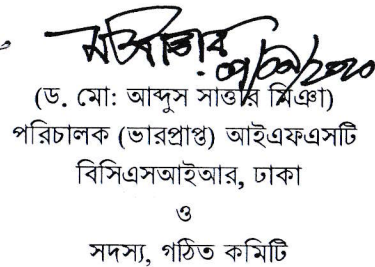 (ড. মো: আব্দুস সাত্তার মিঞা)
পরিচালক (ভারপ্রাপ্ত) আইএফএসটি
বিসিএসআইআর, ঢাকা
ও
সদস্য, গঠিত কমিটি